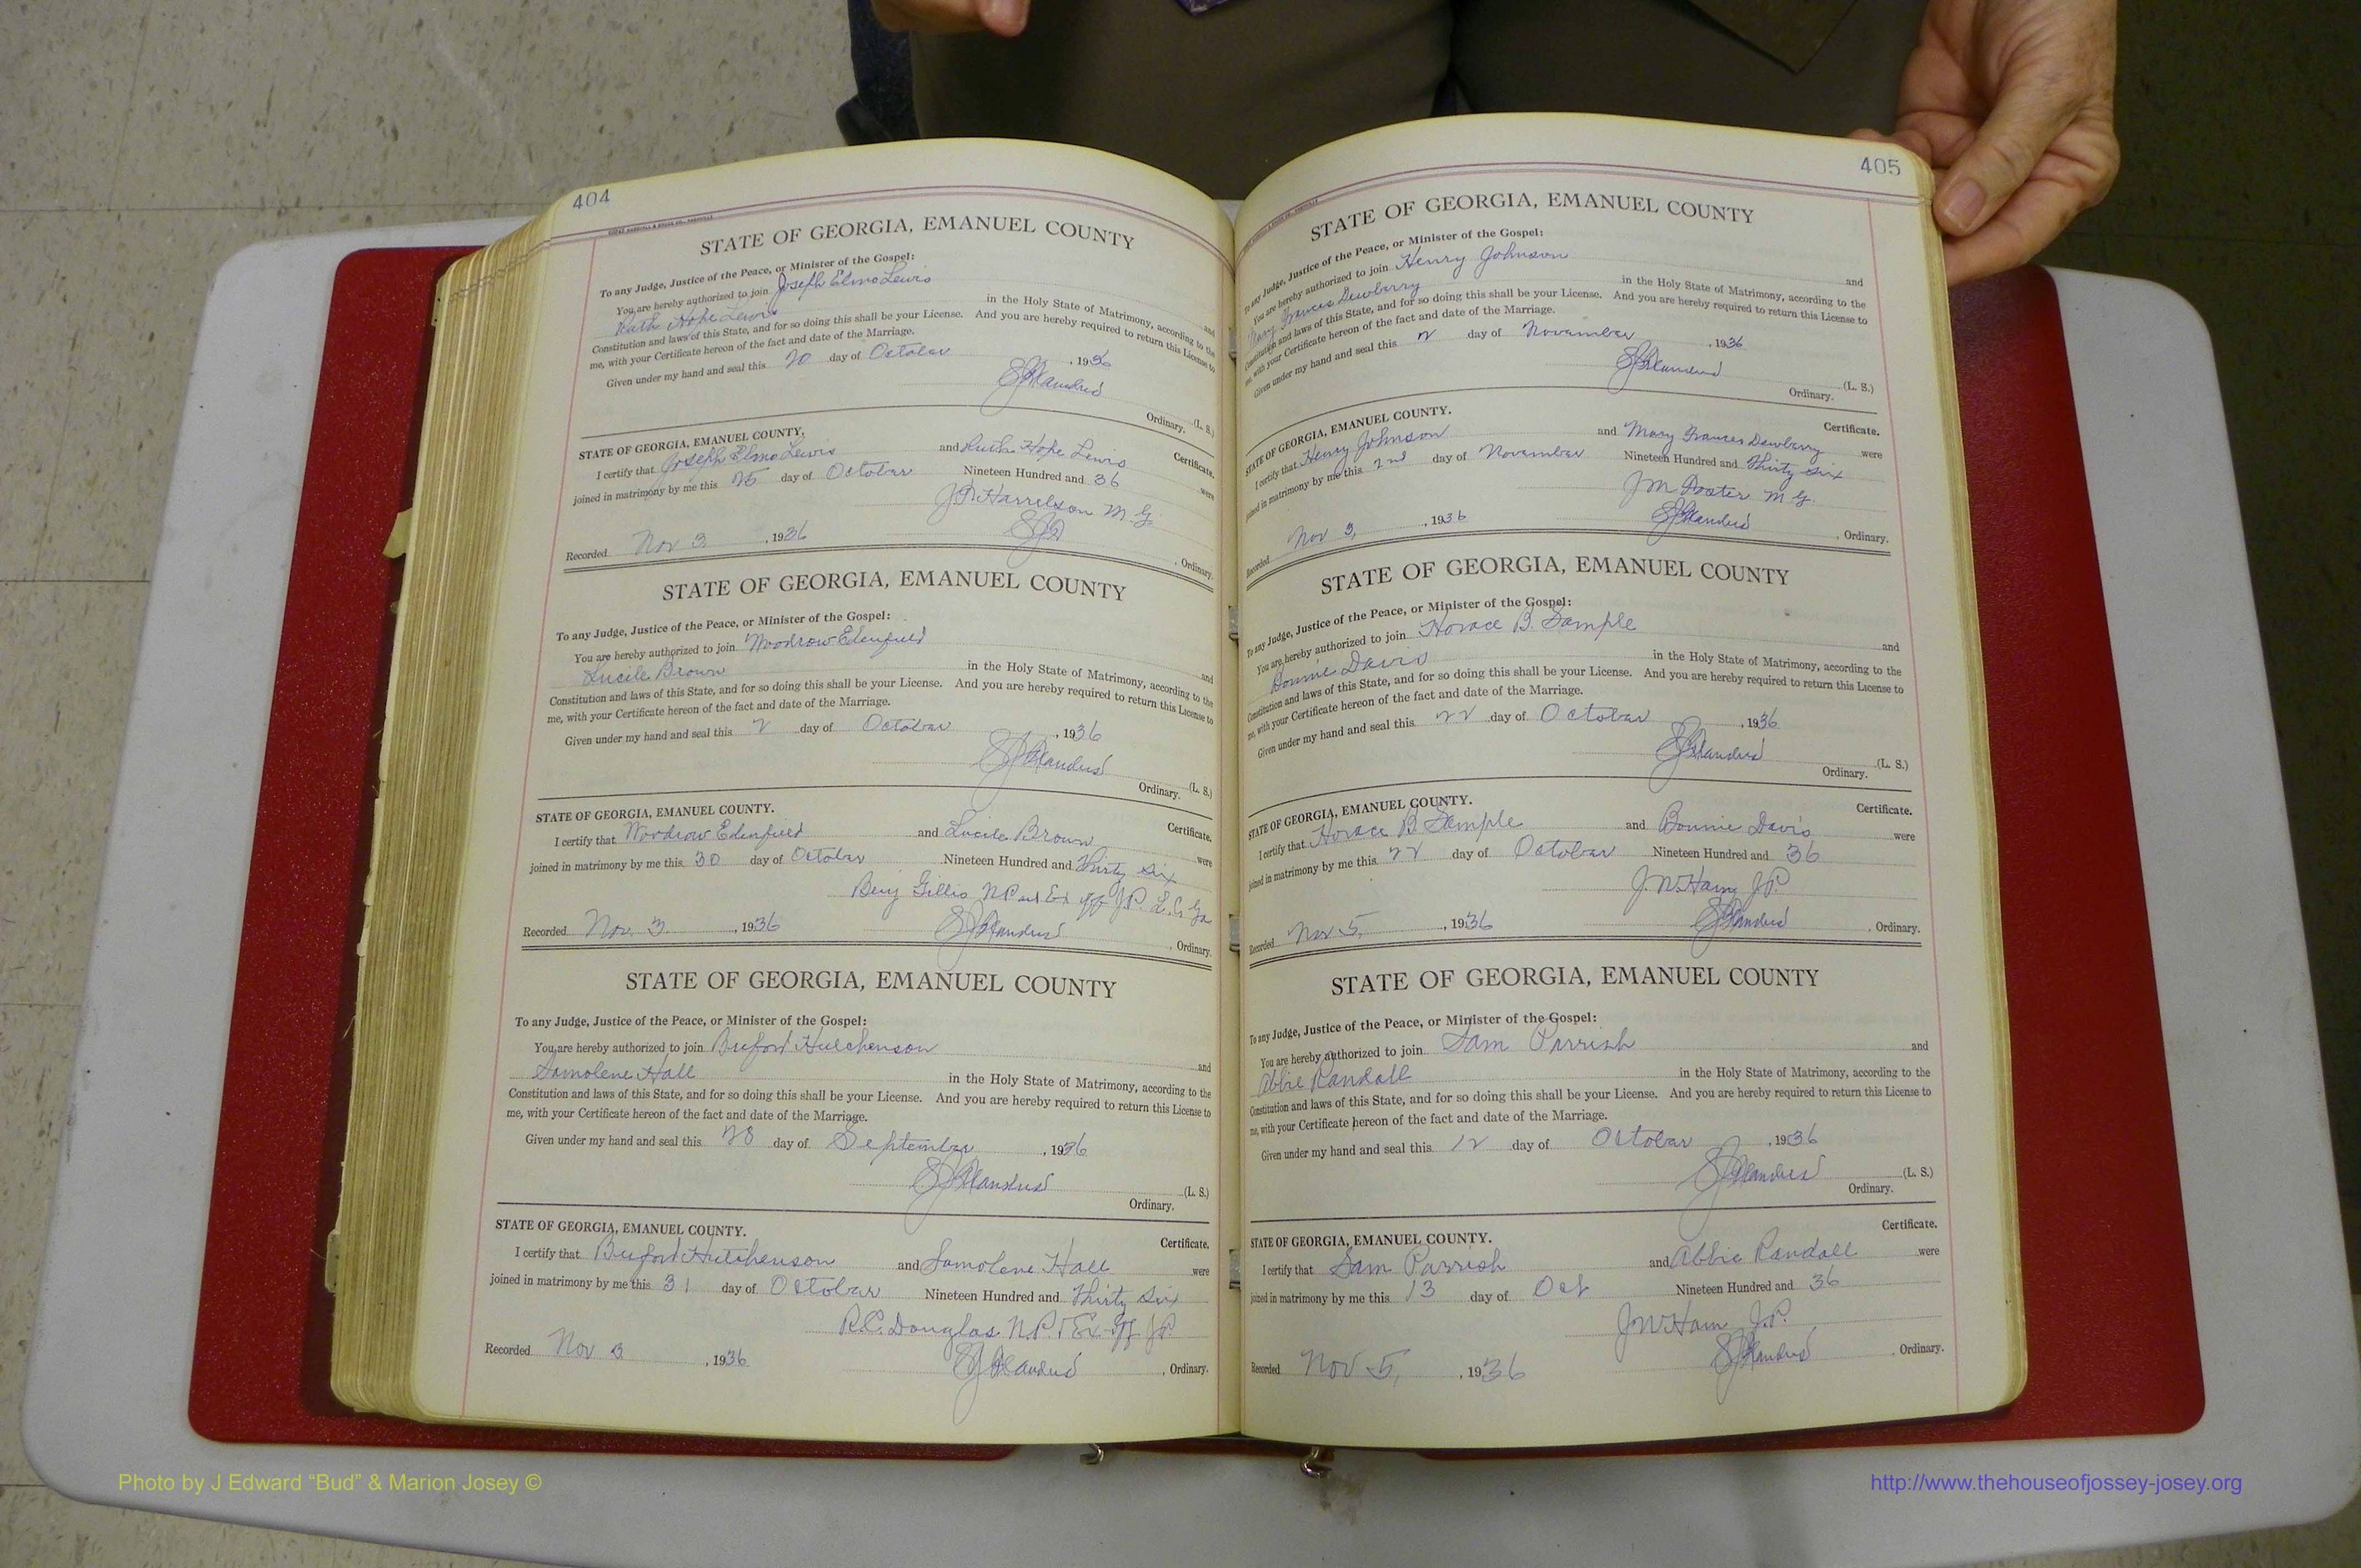 404
STATE OF GEORGIA, EMANUEL COUNTY
To any Judge, Justice of the Peace, or Minister of the Gospel:
You are hereby authorized to join Joseph Elmo Lewis and
Ruth Hope Lewis in the Holy State of Matrimony, according to the
Constitution and laws of this State, and for so doing this shall be your License. And you are hereby required to return this License to
me, with your Certificate hereon of the fact and date of the Marriage.
Given under my hand and seal this 20 day of October, 1936
(L. S.)
Ordinary.
STATE OF GEORGIA, EMANUEL COUNTY.
Certificate.
I certify that Joseph Elmo Lewis and Ruth Hope Lewis were
joined in matrimony by me this 25 day of October Nineteen Hundred and 36
Harrelson M. G.
Recorded Nov 3, 1936, Ordinary.
STATE OF GEORGIA, EMANUEL COUNTY
To any Judge, Justice of the Peace, or Minister of the Gospel:
You are hereby authorized to join Woodrow Edenfield and
Lucile Brown in the Holy State of Matrimony, according to the
Constitution and laws of this State, and for so doing this shall be your License. And you are hereby required to return this License to
me, with your Certificate hereon of the fact and date of the Marriage.
Given under my hand and seal this 2 day of October, 1936
(L. S.)
Ordinary.
STATE OF GEORGIA, EMANUEL COUNTY.
Certificate.
I certify that Woodrow Edenfield and Lucile Brown were
joined in matrimony by me this 30 day of October Nineteen Hundred and Thirty Six
Benj Gillis N.P. and Ex off J.P.
Recorded Nov. 3, 1936, Ordinary.
STATE OF GEORGIA, EMANUEL COUNTY
To any Judge, Justice of the Peace, or Minister of the Gospel:
You are hereby authorized to join Buford Hutchenson and
Samolene Hall in the Holy State of Matrimony, according to the
Constitution and laws of this State, and for so doing this shall be your License. And you are hereby required to return this License to
me, with your Certificate hereon of the fact and date of the Marriage.
Given under my hand and seal this 28 day of September, 1936
(L. S.)
Ordinary.
STATE OF GEORGIA, EMANUEL COUNTY.
Certificate.
I certify that Buford Hutchenson and Samolene Hall were
joined in matrimony by me this 31 day of October Nineteen Hundred and Thirty Six
R.C. Douglas N.P. & Ex-off J.P.
Recorded Nov 3, 1936, Ordinary.
405
STATE OF GEORGIA, EMANUEL COUNTY
To any Judge, Justice of the Peace, or Minister of the Gospel:
You are hereby authorized to join Henry Johnson and
Mary Frances Dewberry in the Holy State of Matrimony, according to the
Constitution and laws of this State, and for so doing this shall be your License. And you are hereby required to return this License to
me, with your Certificate hereon of the fact and date of the Marriage.
Given under my hand and seal this 2 day of November, 1936
(L. S.)
Ordinary.
STATE OF GEORGIA, EMANUEL COUNTY.
Certificate.
I certify that Henry Johnson and Mary Frances Dewberry were
joined in matrimony by me this 2nd day of November Nineteen Hundred and Thirty Six
J M M. G.
Recorded Nov 3, 1936, Ordinary.
STATE OF GEORGIA, EMANUEL COUNTY
To any Judge, Justice of the Peace, or Minister of the Gospel:
You are hereby authorized to join Horace B. Sample and
Bonnie Davis in the Holy State of Matrimony, according to the
Constitution and laws of this State, and for so doing this shall be your License. And you are hereby required to return this License to
me, with your Certificate hereon of the fact and date of the Marriage.
Given under my hand and seal this 22 day of October, 1936
(L. S.)
Ordinary.
STATE OF GEORGIA, EMANUEL COUNTY.
Certificate.
I certify that Horace B. Sample and Bonnie Davis were
joined in matrimony by me this 22 day of October Nineteen Hundred and 36
J.W. Ham J.P.
Recorded Nov 5, 1936, Ordinary.
STATE OF GEORGIA, EMANUEL COUNTY
To any Judge, Justice of the Peace, or Minister of the Gospel:
You are hereby authorized to join Sam Parrish and
Abbie Randall in the Holy State of Matrimony, according to the
Constitution and laws of this State, and for so doing this shall be your License. And you are hereby required to return this License to
me, with your Certificate hereon of the fact and date of the Marriage.
Given under my hand and seal this 12 day of October, 1936
(L. S.)
Ordinary.
STATE OF GEORGIA, EMANUEL COUNTY.
Certificate.
I certify that Sam Parrish and Abbie Randall were
joined in matrimony by me this 13 day of Oct Nineteen Hundred and 36
J W Ham J.P.
Recorded Nov 5, 1936, Ordinary.
Photo by J Edward “Bud” & Marion Josey ©
http://www.thehouseofjossey-josey.org